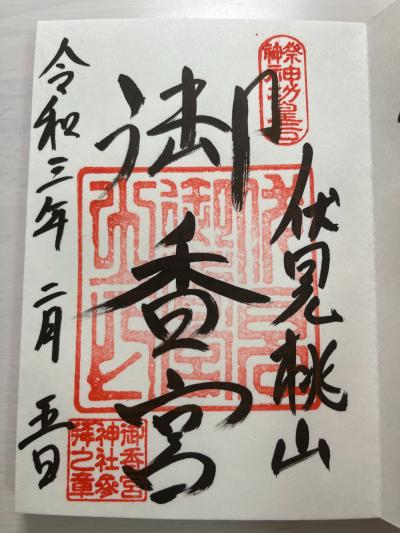 伏見桃山
御香宮
令和三年 二月 五日
祭神神功皇后
御香宮
神社参
拝之章